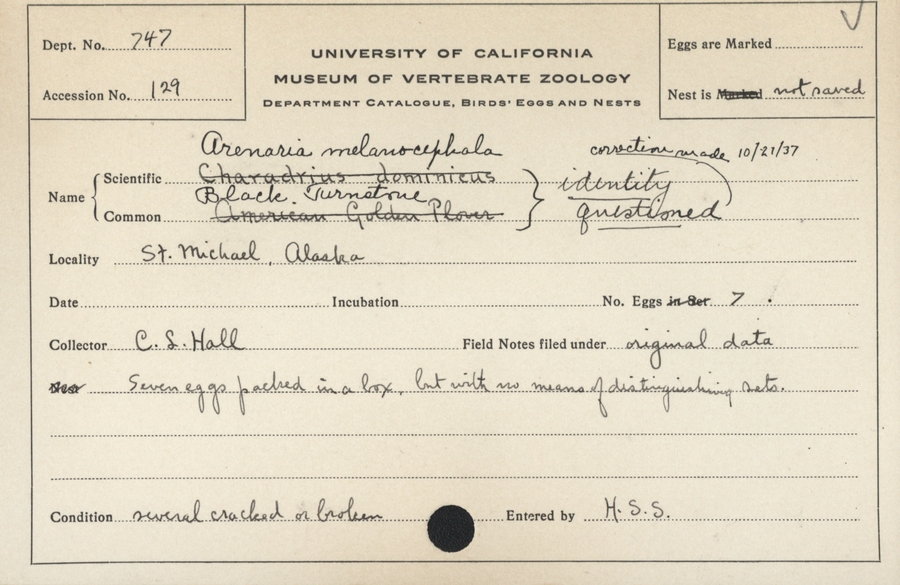 Dept. No. 747
Accession No. 129
UNIVERSITY OF CALIFORNIA
MUSEUM OF VERTEBRATE ZOOLOGY
DEPARTMENT CATALOGUE, BIRDS' EGGS AND NESTS
Eggs are Marked
Nest is Marked not saved
Arenaria melanocephala correction made 10/21/37
Name Scientific Charadrius dominicus identity
Black Turnstone
Common American Golden Plover questioned
Locality St. Michael, Alaska
Date Incubation No. Eggs in Set 7.
Collector C. S. Hall Field Notes filed under original data
Nest Seven eggs packed in a box, but with no means of distinguishing sets.
Condition several cracked or broken Entered by H.S.S.